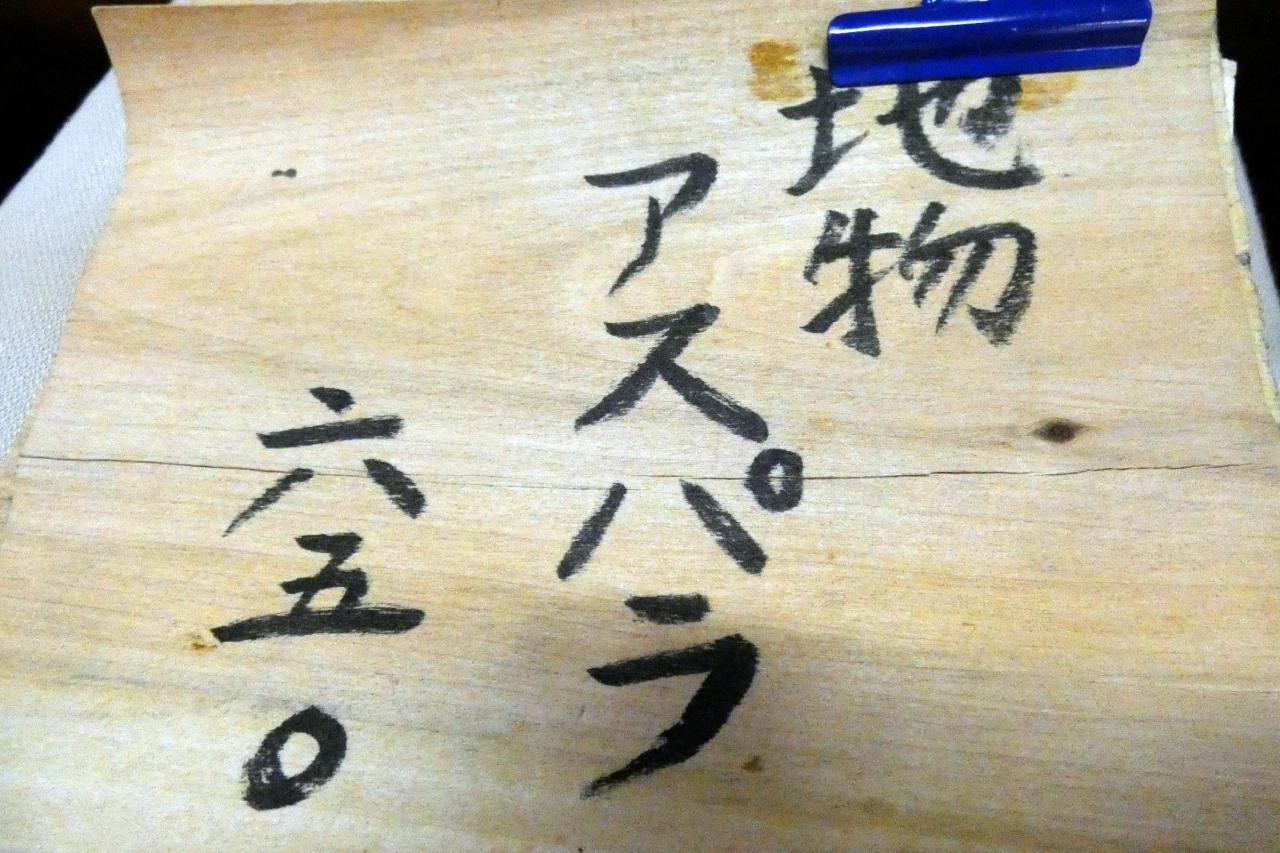 地物
アスパラ
六五〇